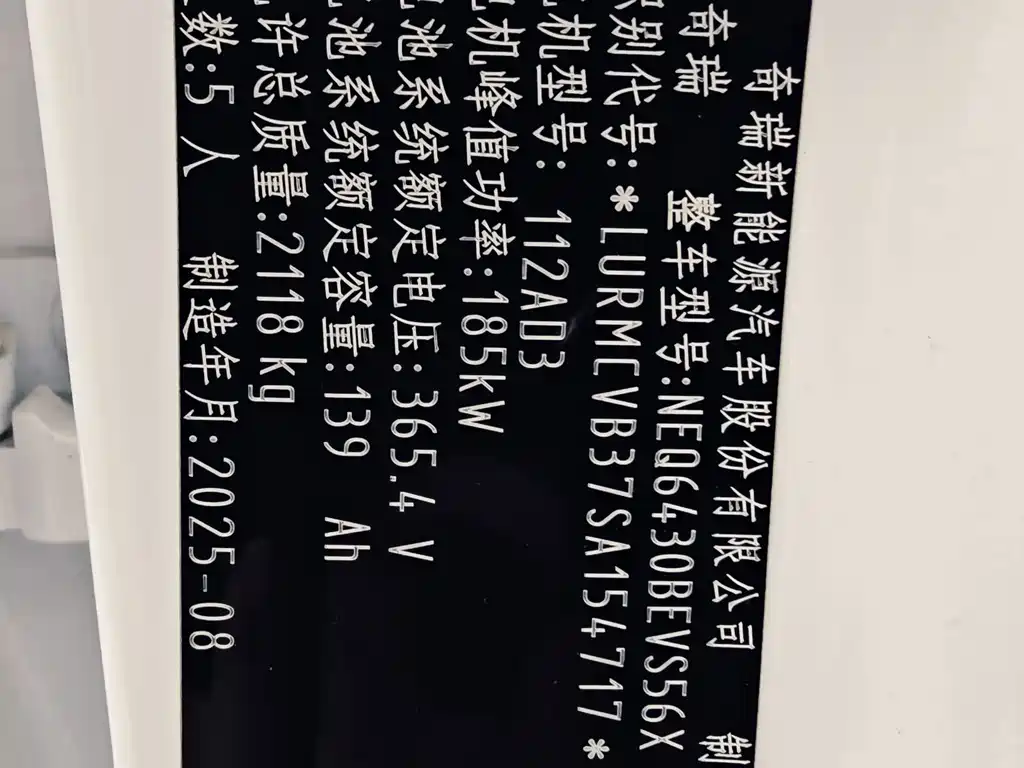 奇瑞新能源汽车股份有限公司 制
奇瑞 整车型号:NEQ6430BEVS56X
识别代号:*LURMCVB37SA154717*
机型号: 112AD3
电机峰值功率:185kW
电池系统额定电压:365.4 V
电池系统额定容量:139 Ah
允许总质量:2118 kg
数:5 人 制造年月:2025-08